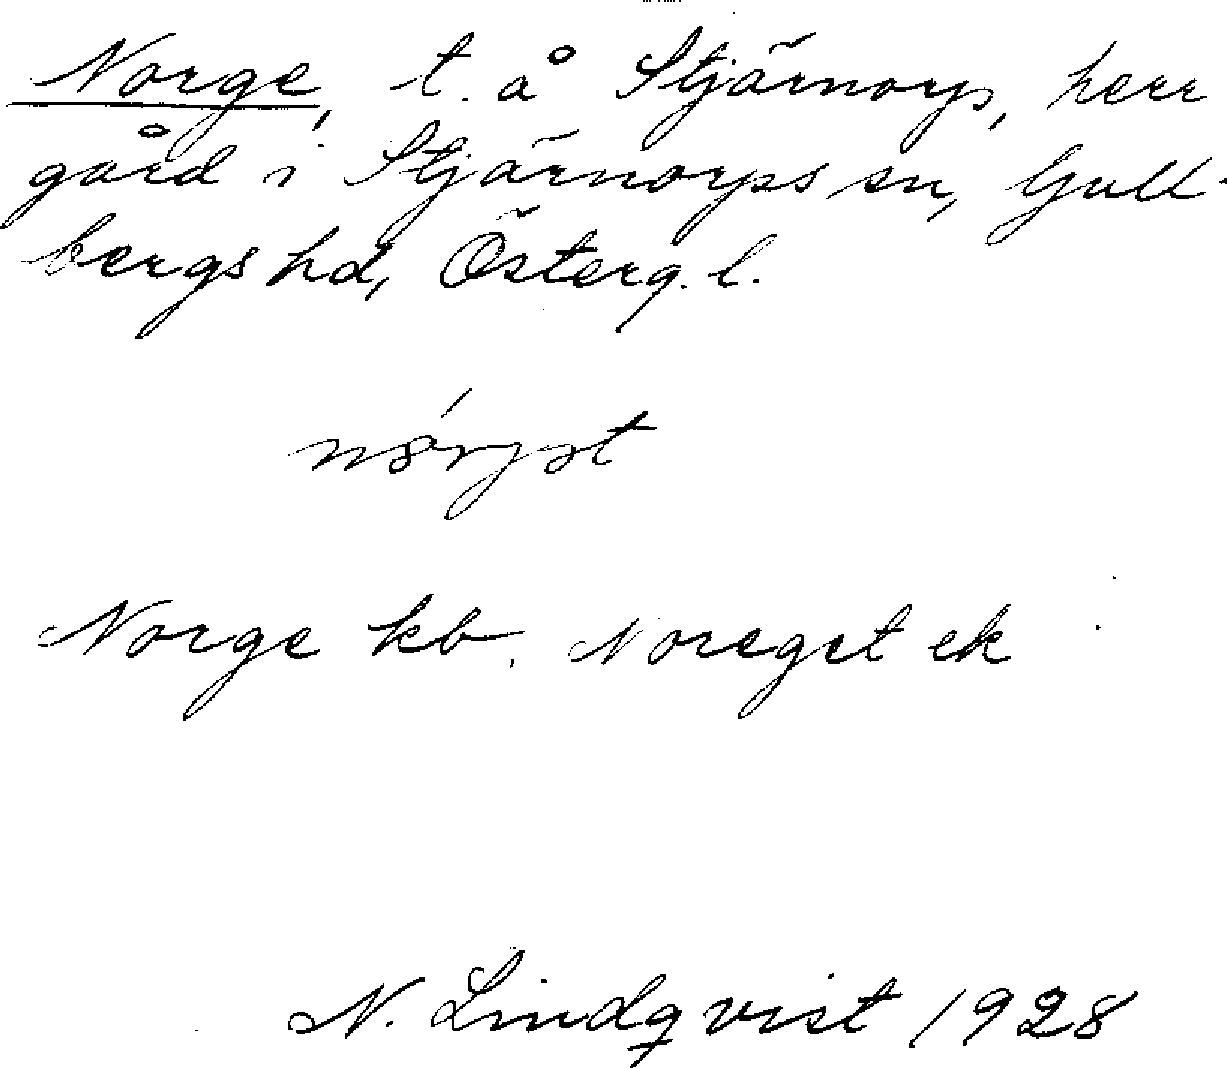 Norge, t. å Stjärnorp, herr
gård i Stjärnorps sn, Gull-
bergs hd, Österg. l.
Norge kb. Noreget ek
N. Lindqvist 1928